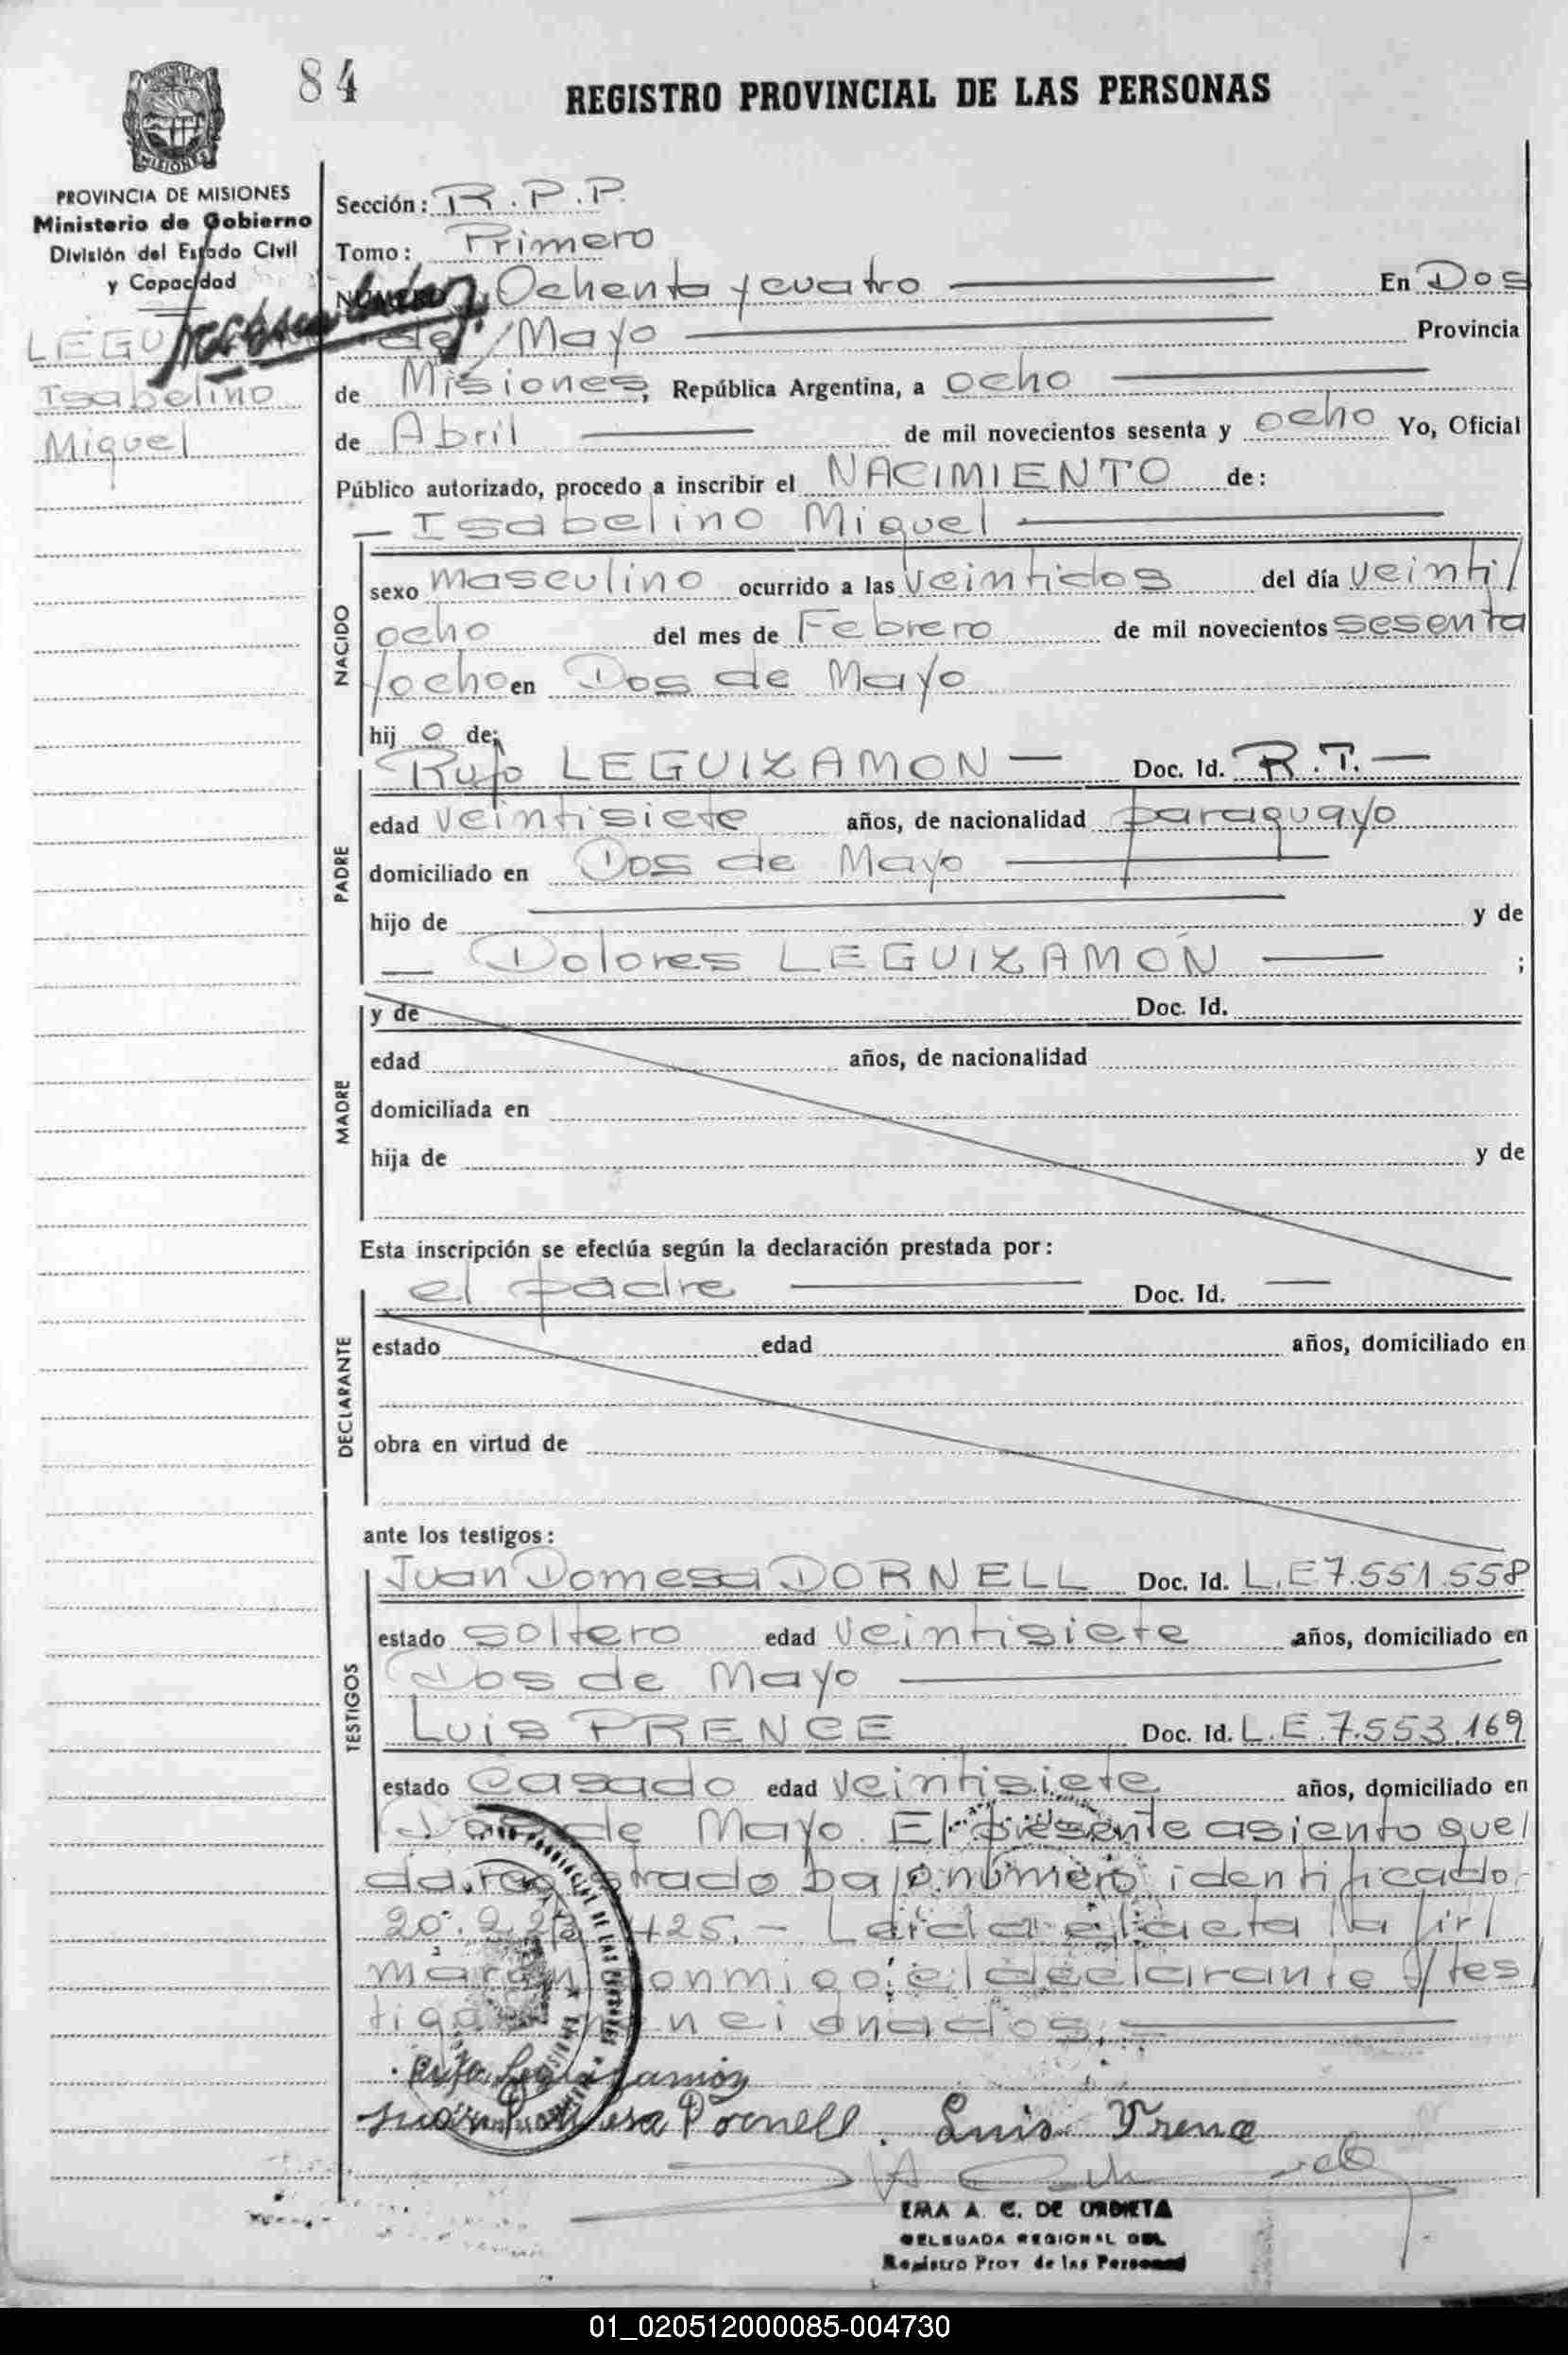 84
REGISTRO PROVINCIAL DE LAS PERSONAS
MISIONES
PROVINCIA DE MISIONES
Ministerio de Gobierno
División del Estado Civil
y Capacidad
LEGU
Isabelino
Miguel
Sección: R.P.P.
Tomo: Primero
NÚMERO Ochenta y cuatro En Dos
de Mayo Provincia
de Misiones, República Argentina, a ocho
de Abril de mil novecientos sesenta y ocho Yo, Oficial
Público autorizado, procedo a inscribir el NACIMIENTO de:
Isabelino Miguel
NACIDO
sexo masculino ocurrido a las veintidos del día veinti/
ocho del mes de Febrero de mil novecientos sesenta
yocho en Dos de Mayo
hij o de;
PADRE
Rufo LEGUIZAMON — Doc. Id. R.T. —
edad veintisiete años, de nacionalidad paraguayo
domiciliado en Dos de Mayo
hijo de y de
— Dolores LEGUIZAMÓN — ;
MADRE
y de Doc. Id.
edad años, de nacionalidad
domiciliada en
hija de y de
Esta inscripción se efectúa según la declaración prestada por:
DECLARANTE
el padre Doc. Id. —
estado edad años, domiciliado en
obra en virtud de
ante los testigos:
TESTIGOS
Juan Domesa DORNELL Doc. Id. L.E 7.551.558
estado soltero edad veintisiete años, domiciliado en
Dos de Mayo
Luis PRENCE Doc. Id. L.E.7.553.169
estado casado edad veintisiete años, domiciliado en
Dos de Mayo. El presente asiento que/
da registrado bajo número identificado
425.- Leída el acta la fir/
maran conmigo el declarante y tes
tigos mencionados.
Rufo Leguizamón
Juan Domesa Dornell. Luis Prence
EMA A. C. DE URDIETA
DELEGADA REGIONAL DEL
Registro Prov de las Personas
01_020512000085-004730